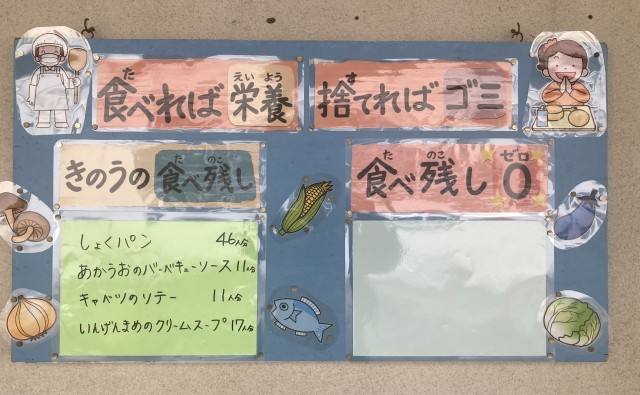 食べれば 栄養
捨てれば ゴミ
きのうの 食べ残し
しょくパン 46人分
あかうおのバーベキューソース 11人分
キャベツのソテー 11人分
いんげんまめのクリームスープ 17人分
食べ残し 0